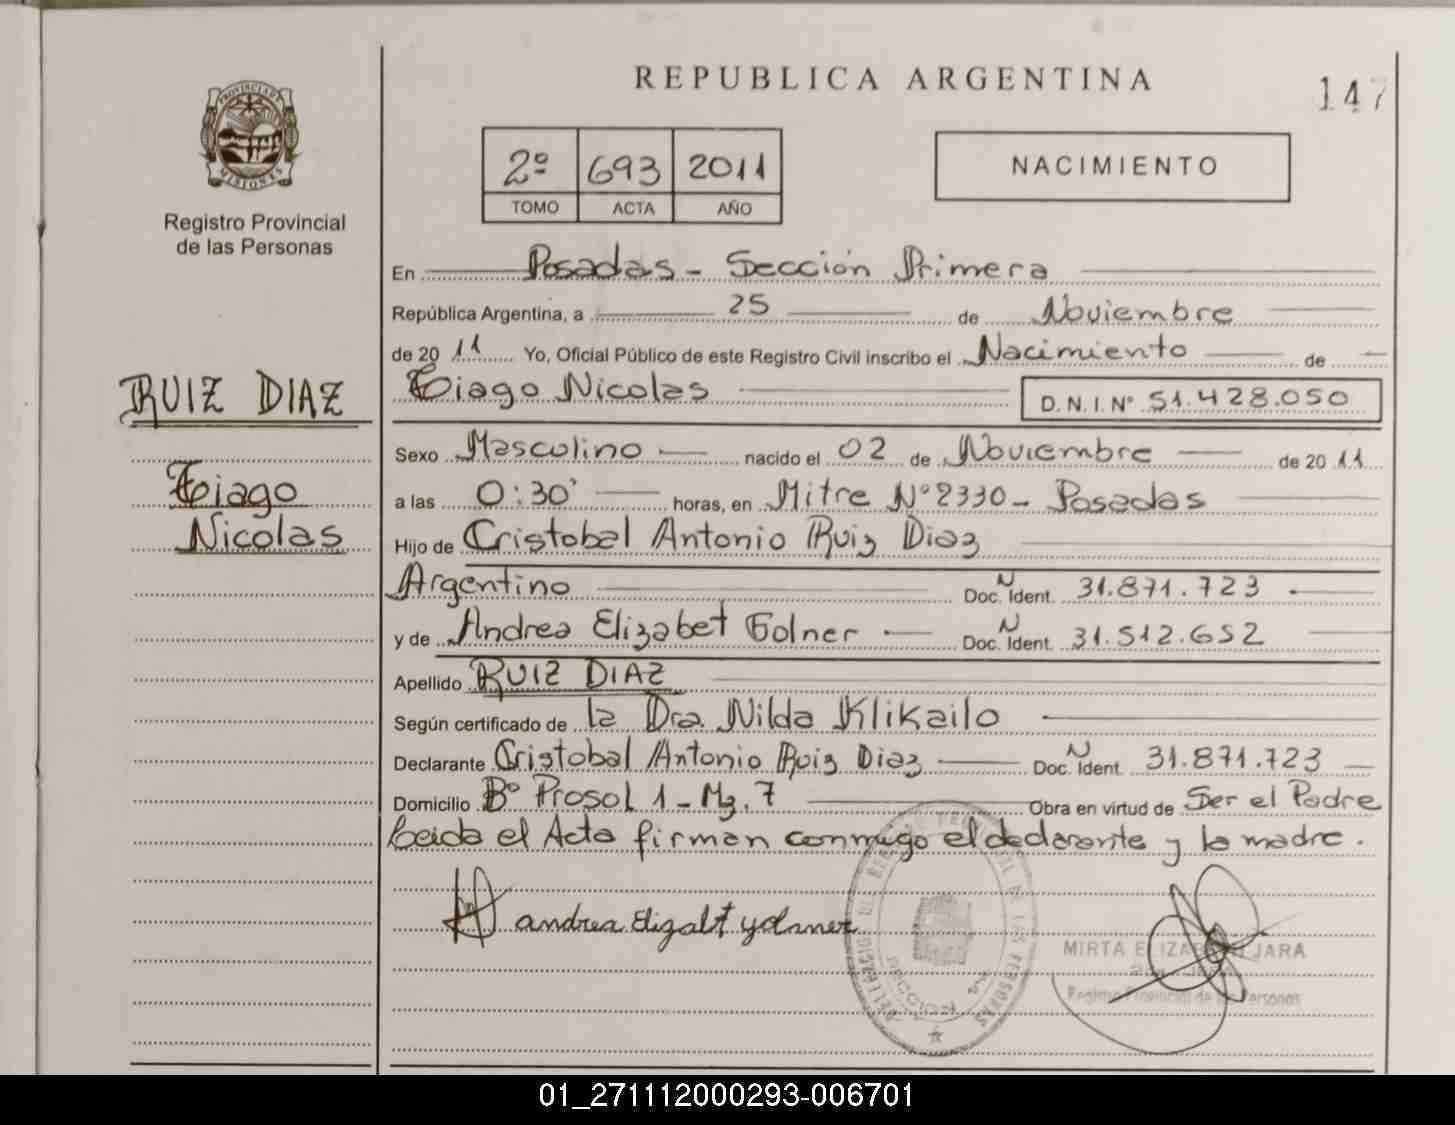 REPUBLICA ARGENTINA
147
PROVINCIA DE MISIONES
Registro Provincial
de las Personas
2º 693 2011
TOMO ACTA AÑO
NACIMIENTO
En Posadas - Sección Primera
República Argentina, a 25 de Noviembre
de 2011 Yo, Oficial Público de este Registro Civil inscribo el Nacimiento de
RUIZ DIAZ
Tiago Nicolas
D.N.I. Nº 51.428.050
Sexo Masculino nacido el 02 de Noviembre de 2011
Tiago
a las 0:30' horas, en Mitre Nº 2330 - Posadas
Nicolas
Hijo de Cristobal Antonio Ruiz Diaz
Argentino Doc. N Ident. 31.871.723
y de Andrea Elizabet Golner Doc. N Ident. 31.512.652
Apellido RUIZ DIAZ
Según certificado de la Dra. Nilda Klikailo
Declarante Cristobal Antonio Ruiz Diaz Doc. N Ident. 31.871.723
Domicilio Bº Prosol 1 - Mz. 7 Obra en virtud de Ser el Padre
Leida el Acta firman conmigo el declarante y la madre.
andrea Elizabt
MIRTA ELIZABETH JARA
Registro Provincial de las Personas
01_271112000293-006701